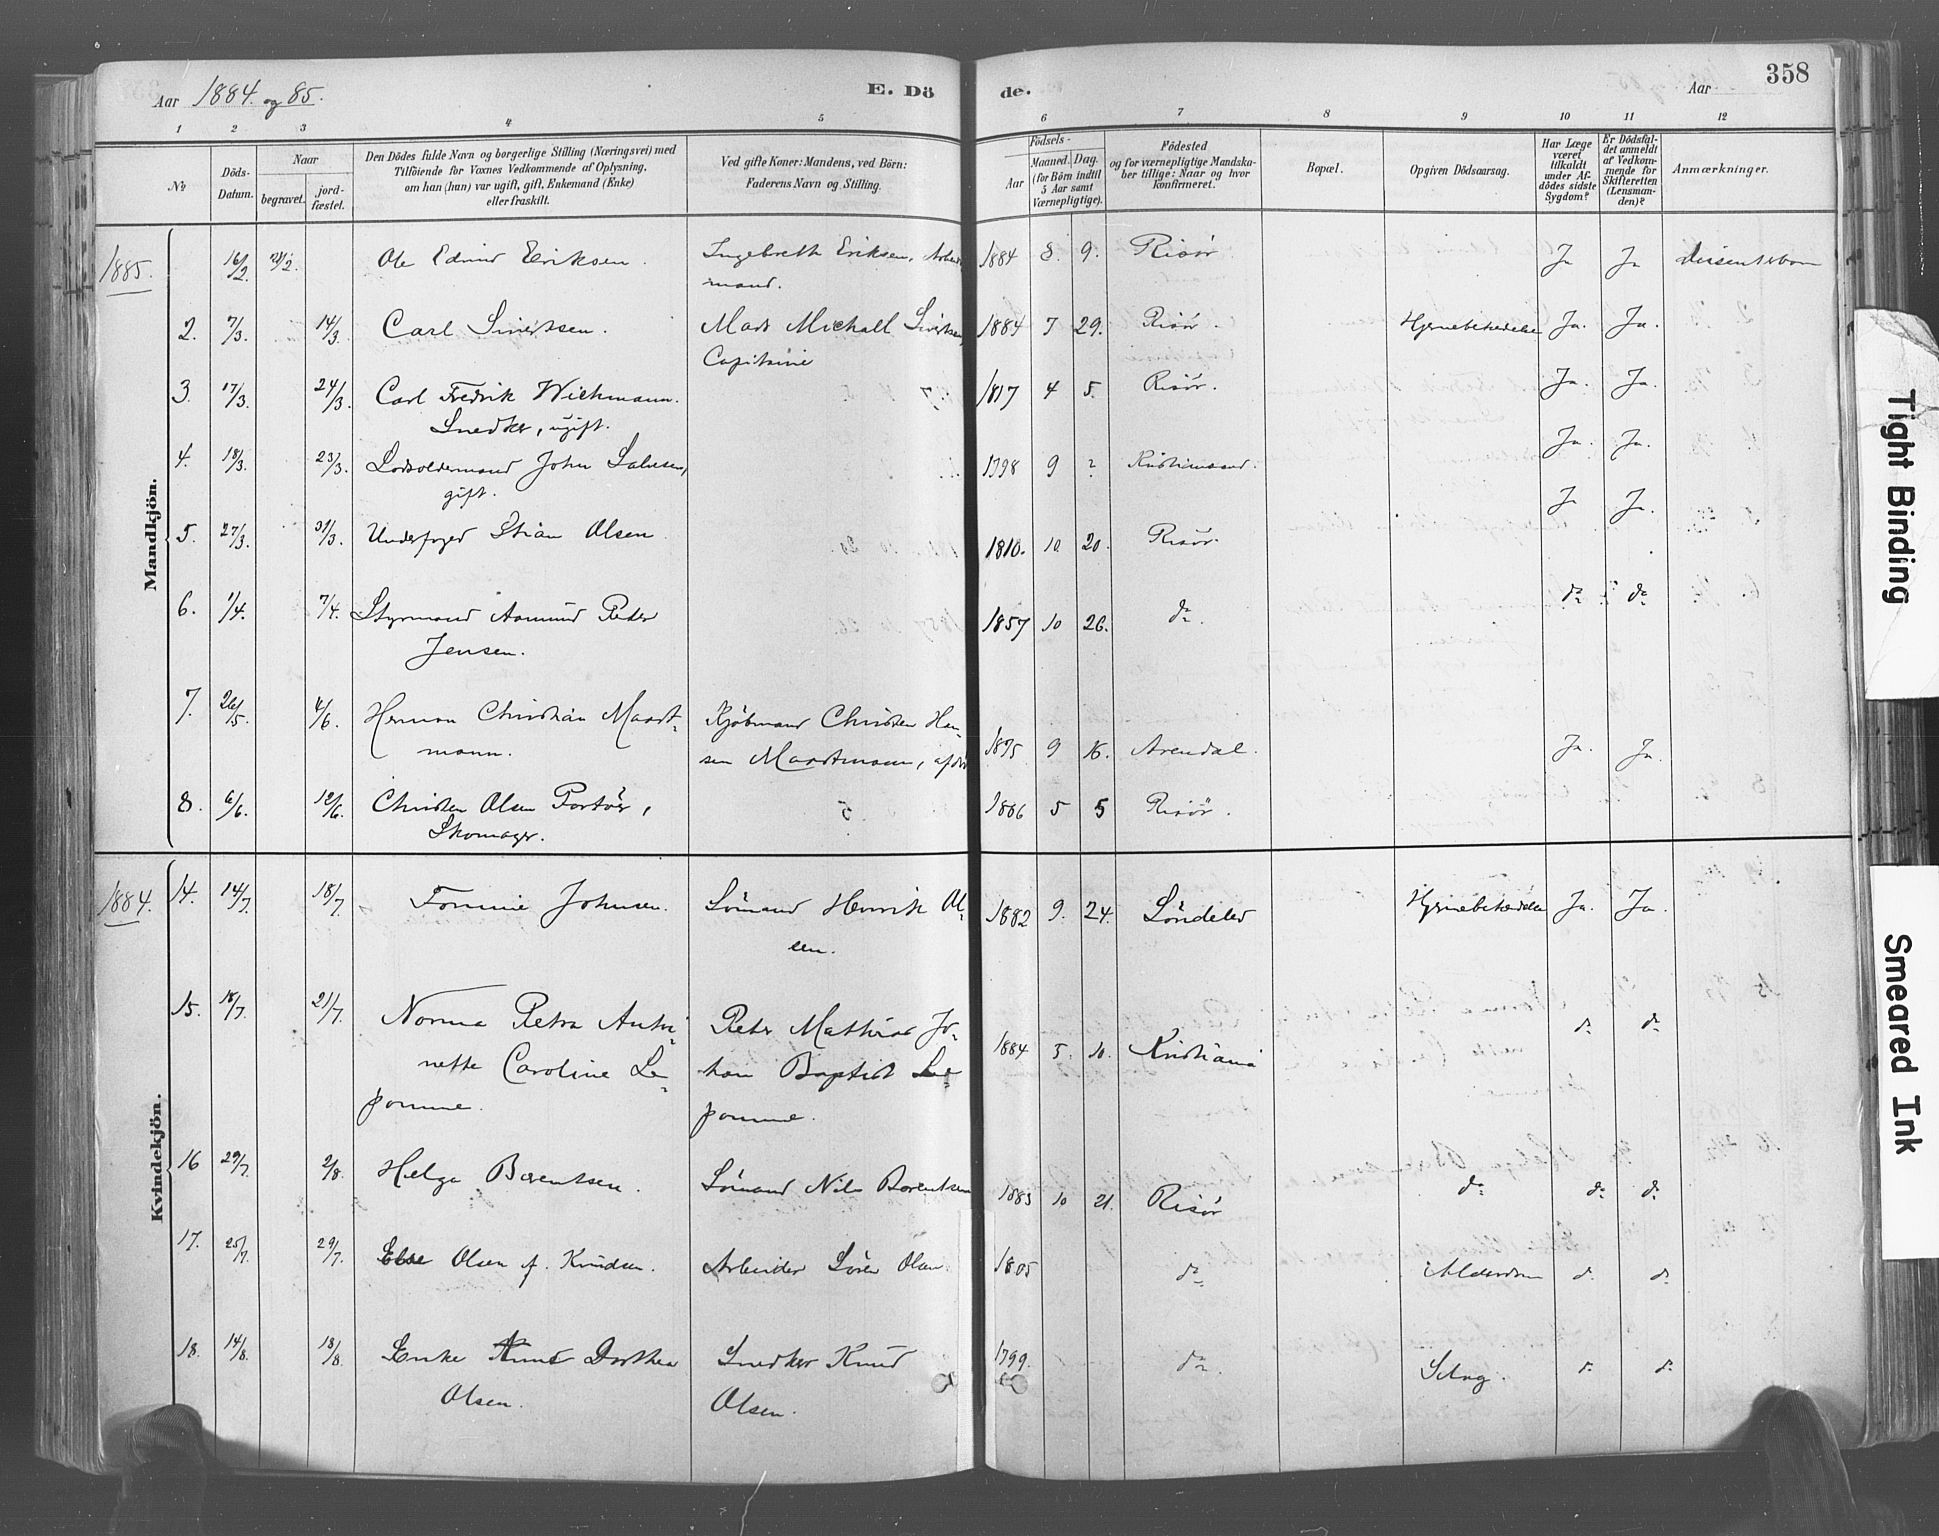 Aar 1884 og 85.
E. Dö de.
Aar
358
1 2 3 4 5 6 7 8 9 10 11 12
No
Döds-Datum.
Naar
begravet.
jord-fæstet.
Den Dödes fulde Navn og borgerlige Stilling (Næringsvei) med
Tilföiende for Voxnes Vedkommende af Oplysning,
om han (hun) var ugift, gift, Enkemand (Enke)
eller fraskilt.
Ved gifte Koner: Mandens, ved Börn:
Faderens Navn og Stilling.
Födsels-
Aar
Maaned. Dag.
(for Börn indtil
5 Aar samt
Værnepligtige).
Födested
og for værnepligtige Mandska-
ber tillige: Naar og hvor
konfirmeret.
Bopæl.
Opgiven Dödsaarsag.
Har Læge
været
tilkaldt
under Af-
dödes sidste
Sygdom?
Er Dödsfal-
det anmeldt
af Vedkom-
mende for
Skifteretten
(Lensman-
den)?
Anmærkninger.
Mandkjön.
1885. 16/2. 21/2. Ole Edvind Eriksen. Ingebreth Eriksen, Arbeids 1884 8. 9. Risör Ja Ja Dissenterbarn
mand.
2. 7/3. 14/3. Carl Sivertsen. Mads Michall Sivertsen, 1884 7 29. Risör. Hjernebetændelse Ja. Ja.
Capitaine
3. 17/3. 24/3. Carl Fredrik Wichmann. 1817 4 5. Risör. Ja. Ja.
Snedker, ugift.
4. 18/3. 23/3. Lodsoldermand John Salvesen, 1798 9 ? Kristiansand. Ja. Ja.
gift.
5. 27/3. 31/3. Underfoged Stian Olsen 1810. 10. 20. Risör. Ja Ja.
6. 1/4. 7/4. Styrmand Asmund Peder 1857 10 26. do. do do
Jensen.
7. 26/5. 4/6. Herman Christian Maart- Kjöbmand Christen Han- 1875 9 16. Arendal. Ja. Ja.
mann. sen Maartmann, afdöd
8. 6/6. 12/6. Christen Olsen Portör, 1806 5 5 Risör.
Skomager.
Kvindekjön.
1884. 14. 14/7. 18/7. Tommie Johnsen. Sömand Henrik Ol- 1882 9. 24. Söndeled Hjernebetændelse Ja. Ja.
sen.
15. 18/7. 21/7. Norma Petra Antoi- Peter Mathias Jo- 1884 5. 10. Kristiania do do
nette Caroline Le- han Baptist Le-
pomme. pomme.
16 29/7. 2/8. Helga Berentsen. Sömand Nils Berentsen 1883 10 21. Risör do do do
17. 25/7. 29/7. Else Olsen f. Knudsen. Arbeider Sören Olsen. 1805 do Alderdom do do
18. 14/8. 18/8. Enke Anne Dorthea Snedker Knud 1799. do. Slag. do do
Olsen. Olsen.
Tight Binding
Smeared Ink